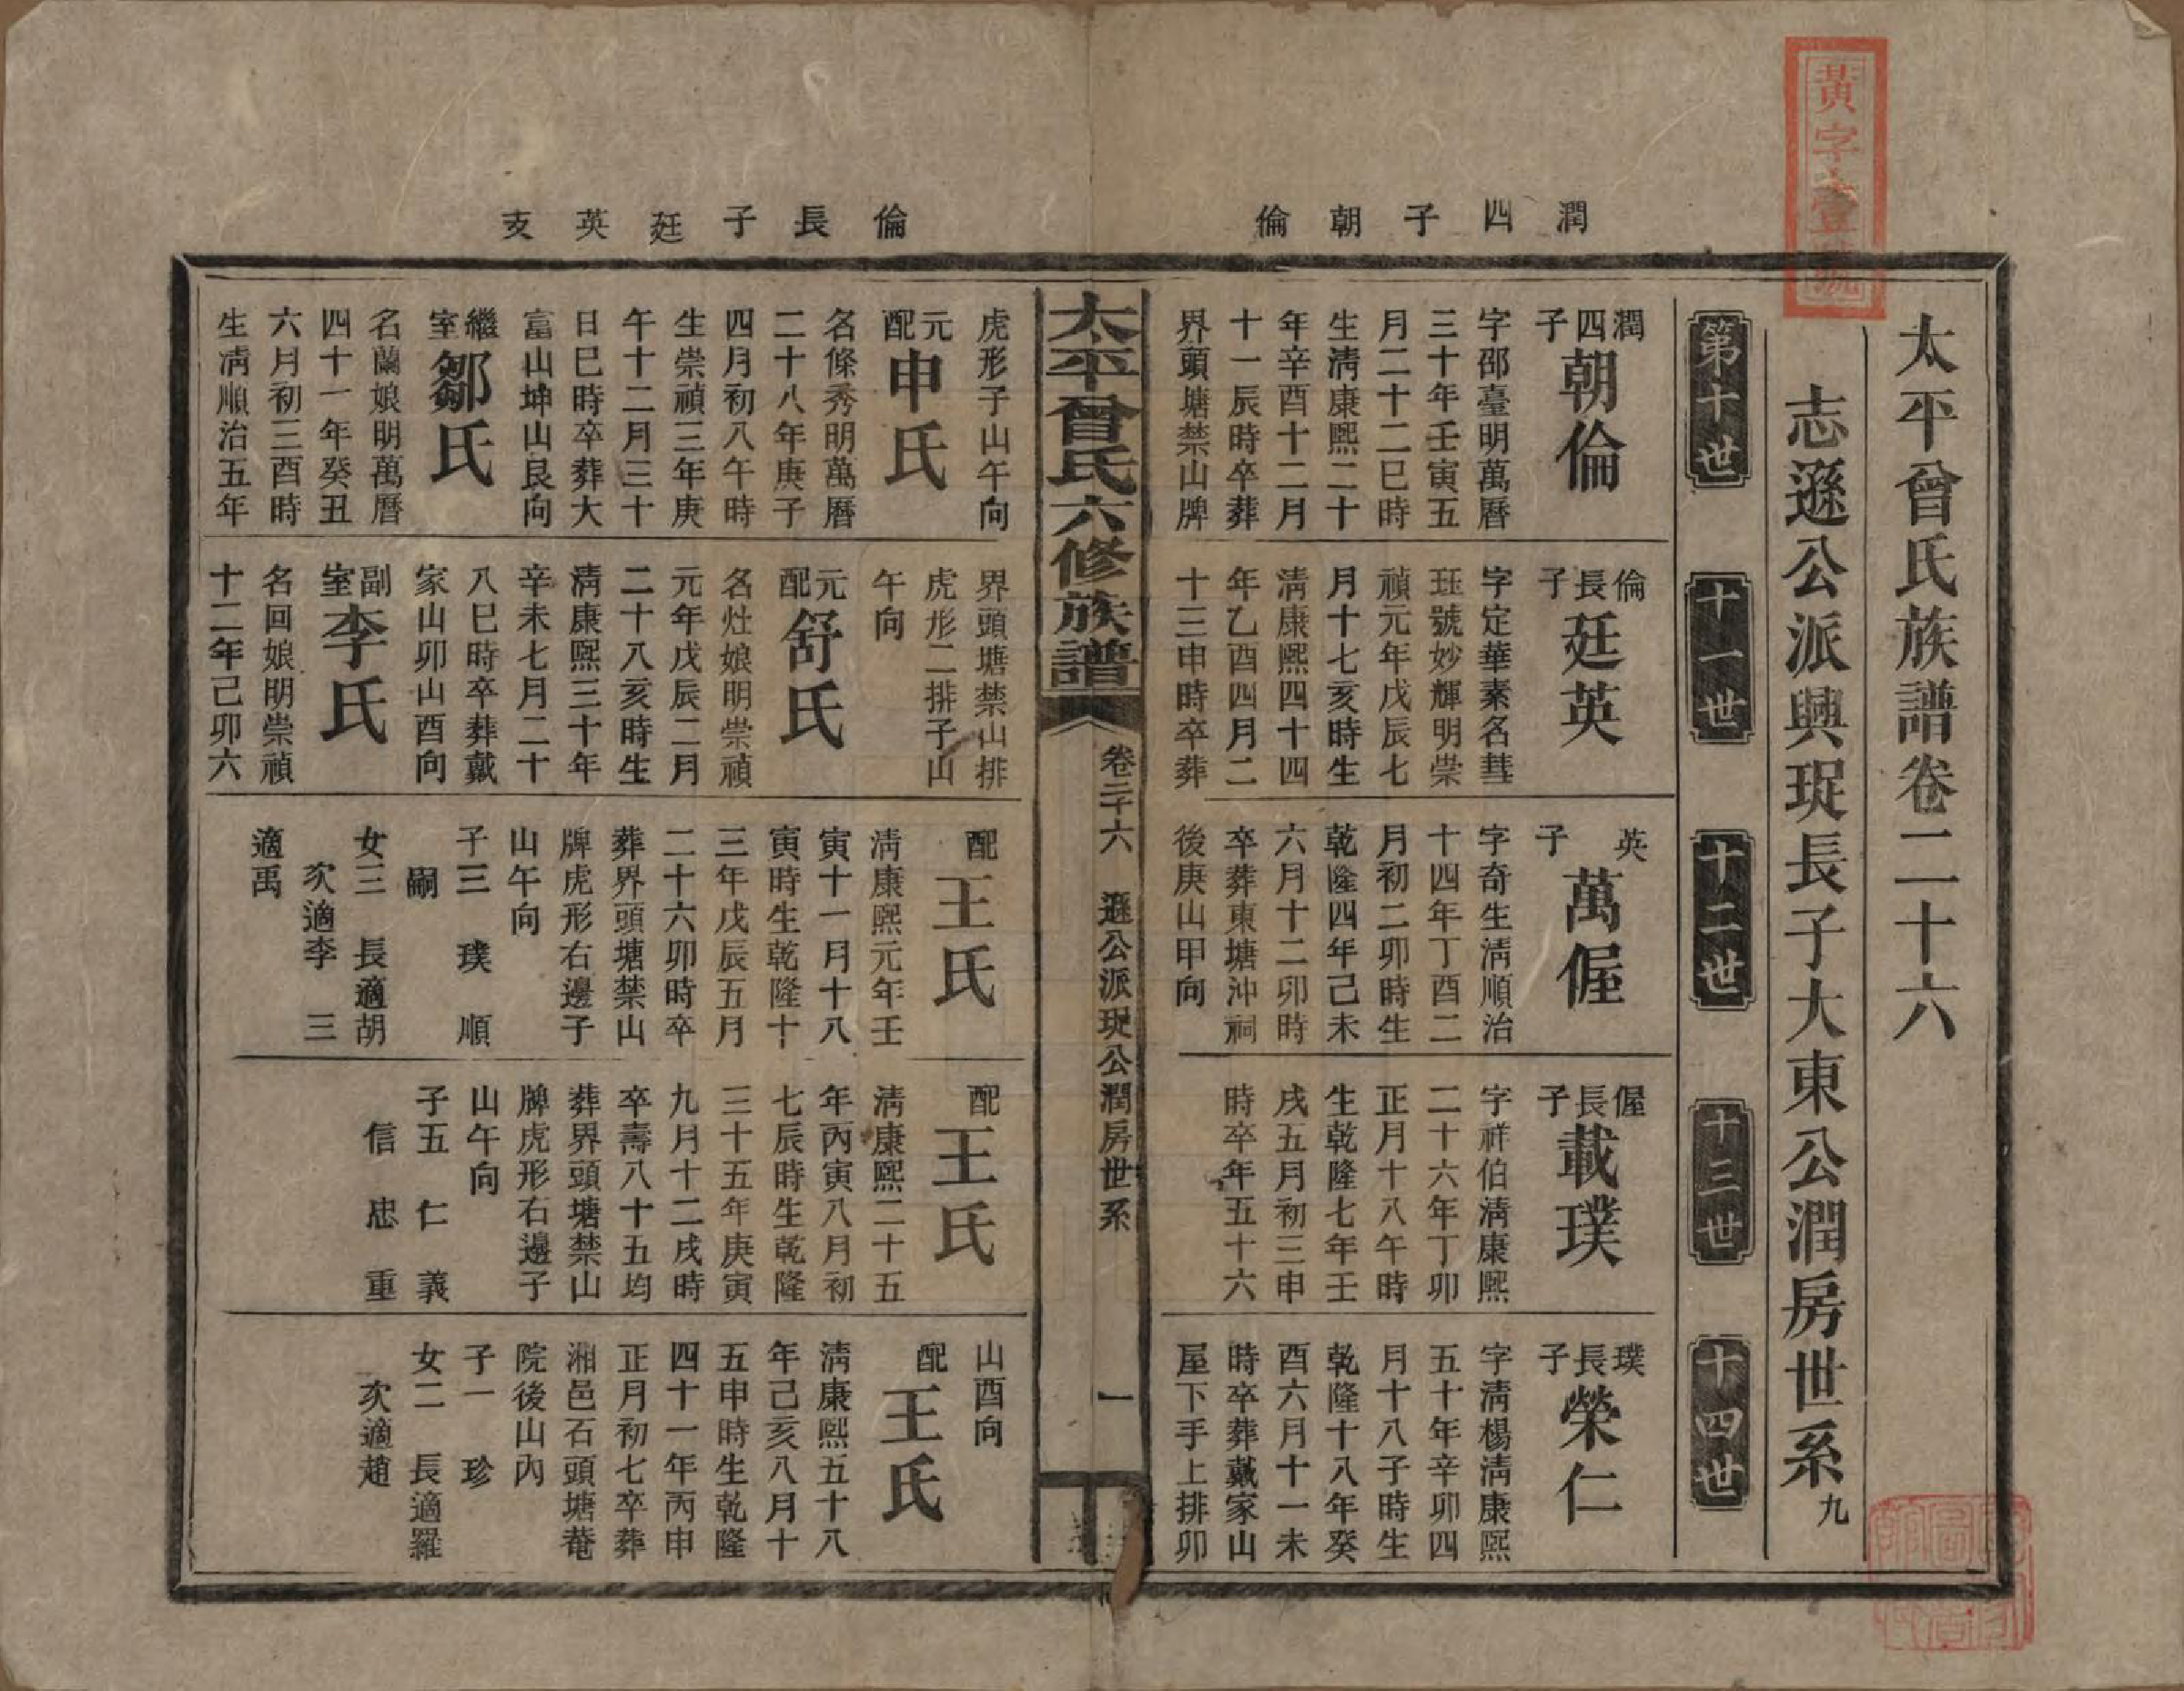 黃字壹號
太平曾氏族譜卷二十六
志遜公派興珽長子大東公潤房世系九
第十世
十一世
十二世
十三世
十四世
潤四子朝倫
潤四子
朝倫
字邵臺明萬曆
三十年壬寅五
月二十二巳時
生淸康熙二十
年辛酉十二月
十一辰時卒葬
界頭塘禁山牌
倫長子
廷英
字定華素名彗
珏號妙輝明崇
禎元年戊辰七
月十七亥時生
淸康熙四十四
年乙酉四月二
十三申時卒葬
英子
萬偓
字奇生淸順治
十四年丁酉二
月初二卯時生
乾隆四年己未
六月十二卯時
卒葬東塘沖祠
後庚山甲向
偓長子
載璞
字祥伯淸康熙
二十六年丁卯
正月十八午時
生乾隆七年壬
戌五月初三申
時卒年五十六
璞長子
榮仁
字淸楊淸康熙
五十年辛卯四
月十八子時生
乾隆十八年癸
酉六月十一未
時卒葬戴家山
屋下手上排卯
太平曾氏六修族譜
卷二十六
遜公派珽公潤房世系
一
倫長子廷英支
虎形子山午向
元配
申氏
名絛秀明萬曆
二十八年庚子
四月初八午時
生崇禎三年庚
午十二月三十
日巳時卒葬大
富山坤山艮向
繼室
鄒氏
名蘭娘明萬曆
四十一年癸丑
六月初三酉時
生淸順治五年
界頭塘禁山排
虎形二排子山
午向
元配
舒氏
名灶娘明崇禎
元年戊辰二月
二十八亥時生
淸康熙三十年
辛未七月二十
八巳時卒葬戴
家山卯山酉向
副室
李氏
名回娘明崇禎
十二年己卯六
配
王氏
淸康熙元年壬
寅十一月十八
寅時生乾隆十
三年戊辰五月
二十六卯時卒
葬界頭塘禁山
牌虎形右邊子
山午向
子三 璞 順
嗣
女三 長適胡
次適李 三
適禹
配
王氏
淸康熙二十五
年丙寅八月初
七辰時生乾隆
三十五年庚寅
九月十二戌時
卒壽八十五均
葬界頭塘禁山
牌虎形右邊子
山午向
子五 仁 義
信 忠 重
山酉向
配
王氏
淸康熙五十八
年己亥八月十
五申時生乾隆
四十一年丙申
正月初七卒葬
湘邑石頭塘菴
院後山內
子一 珍
女二 長適羅
次適趙